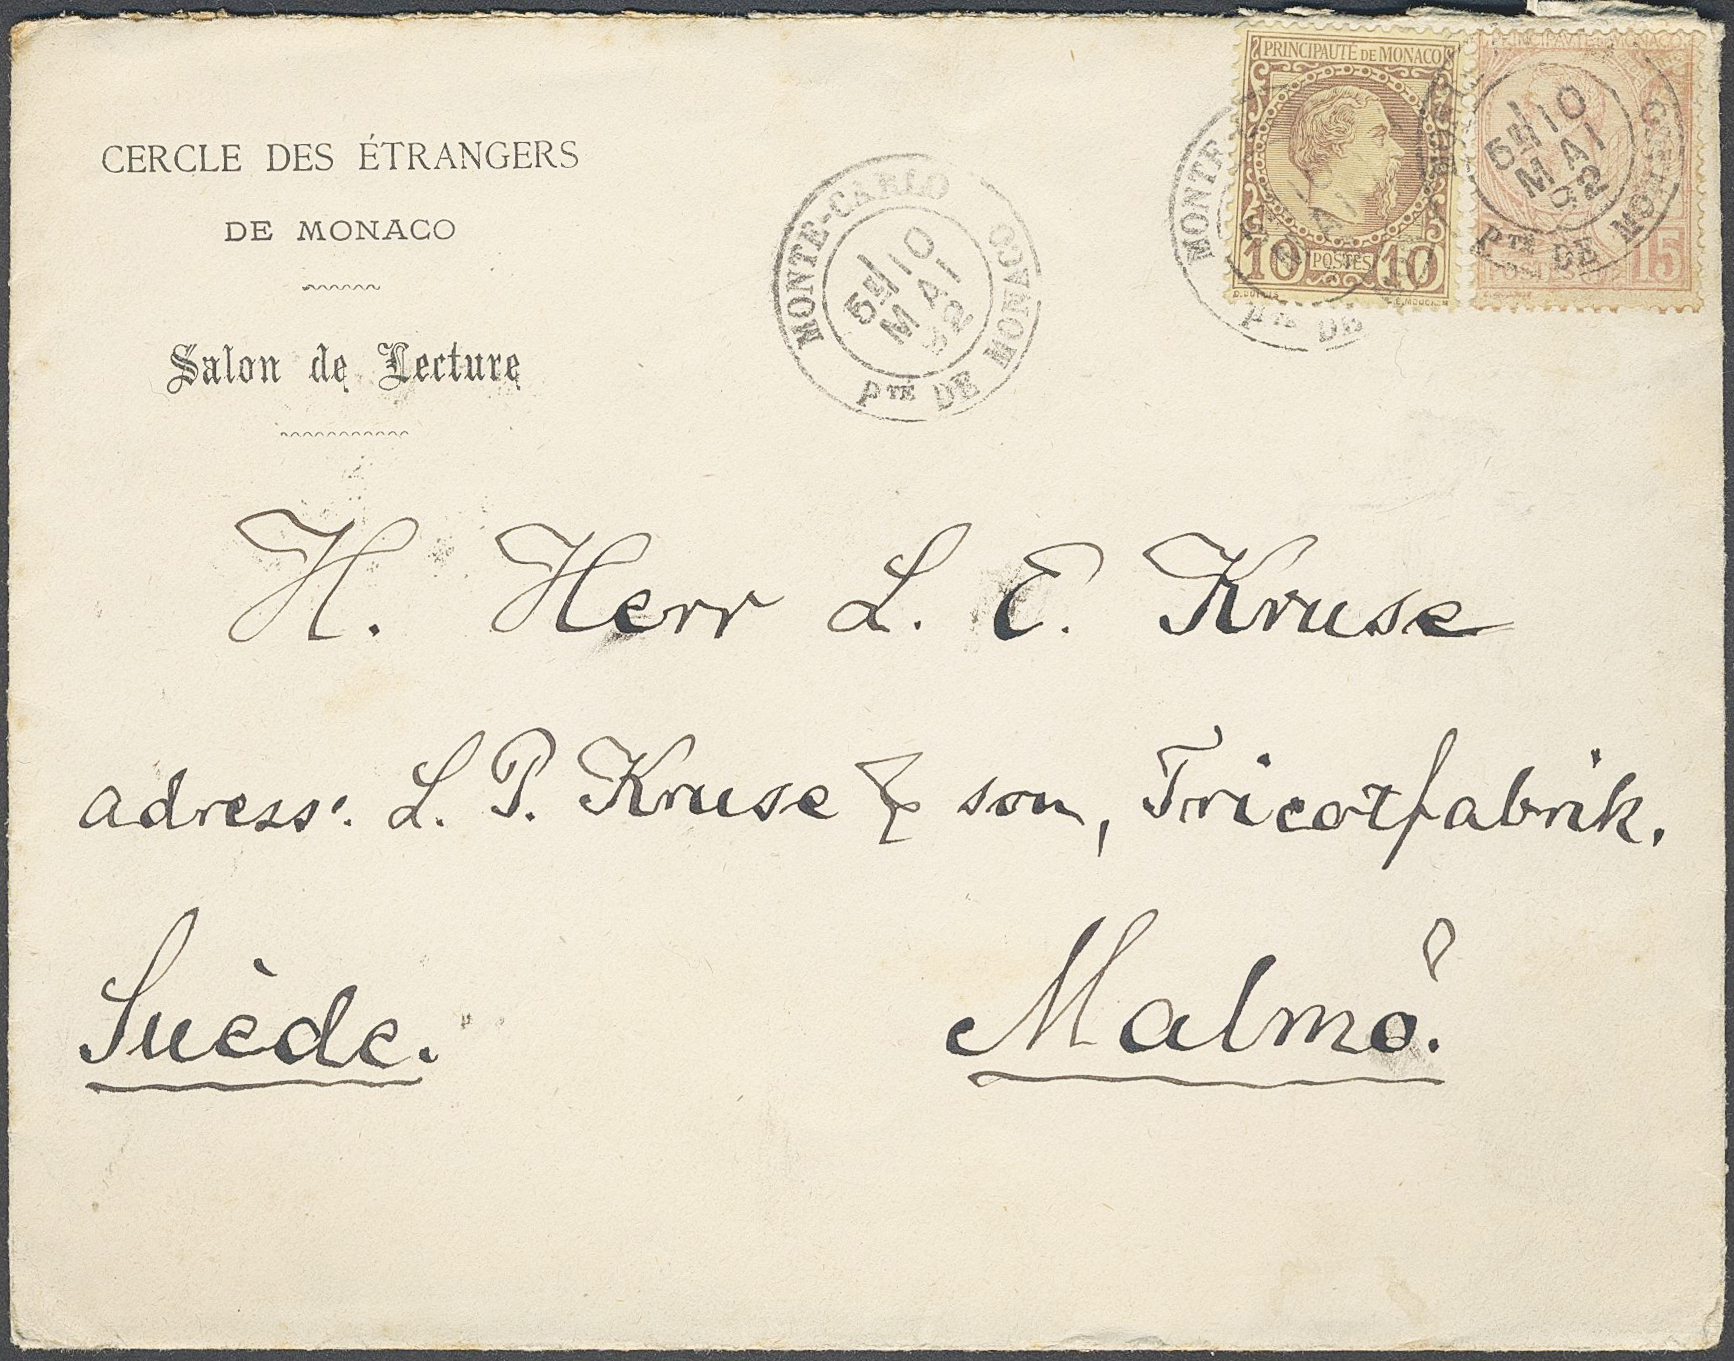 CERCLE DES ÉTRANGERS
DE MONACO
Salon de Lecture
MONTE-CARLO
5E 10
MAI
92
PTÉ DE MONACO
PRINCIPAUTÉ DE MONACO
10 POSTES 10
MONTE
PTÉ DE
PRINCIPAUTÉ DE MONACO
15
10
MAI
92
PTÉ DE MONACO
H. Herr L. E. Kruse
adress: L. P. Kruse & son, Tricotfabrik.
Suède. Malmö.